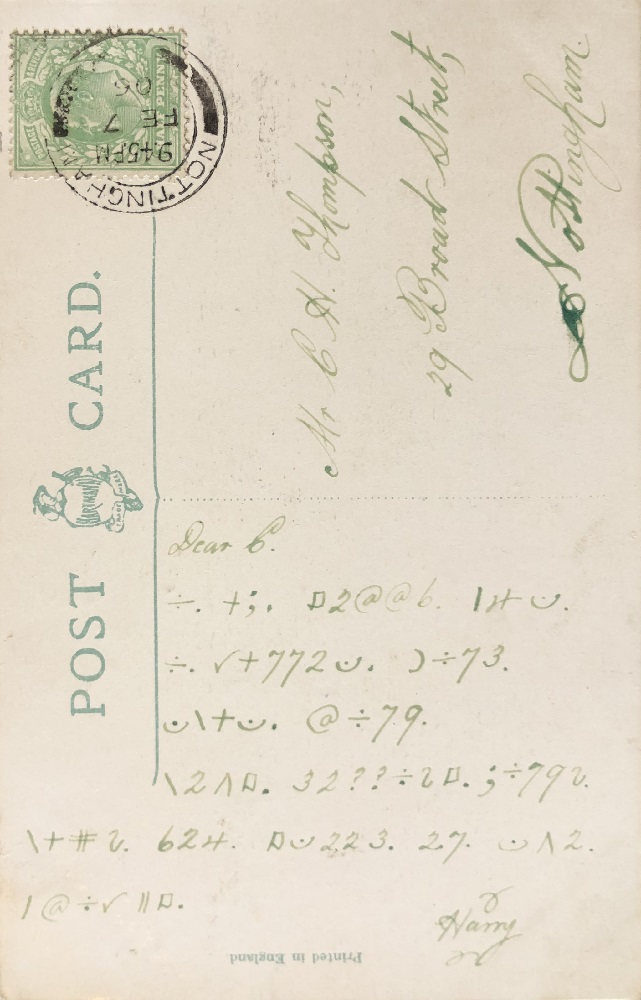 NOTTINGHAM
9.45PM
FE 7
06
POST CARD.
Mr C H. Thompson,
29 Broad Street,
Nottingham.
Dear C.
÷. +;. ▫2@@6. |н ں.
÷. √+772ں. )÷73.
ں\+ں. @÷79.
\2ΛD. 32??÷2D. ;÷792.
\+#2. 62н. Dں223. 27. ںΛ2.
/@÷√ǁD.
Harry
Printed in England